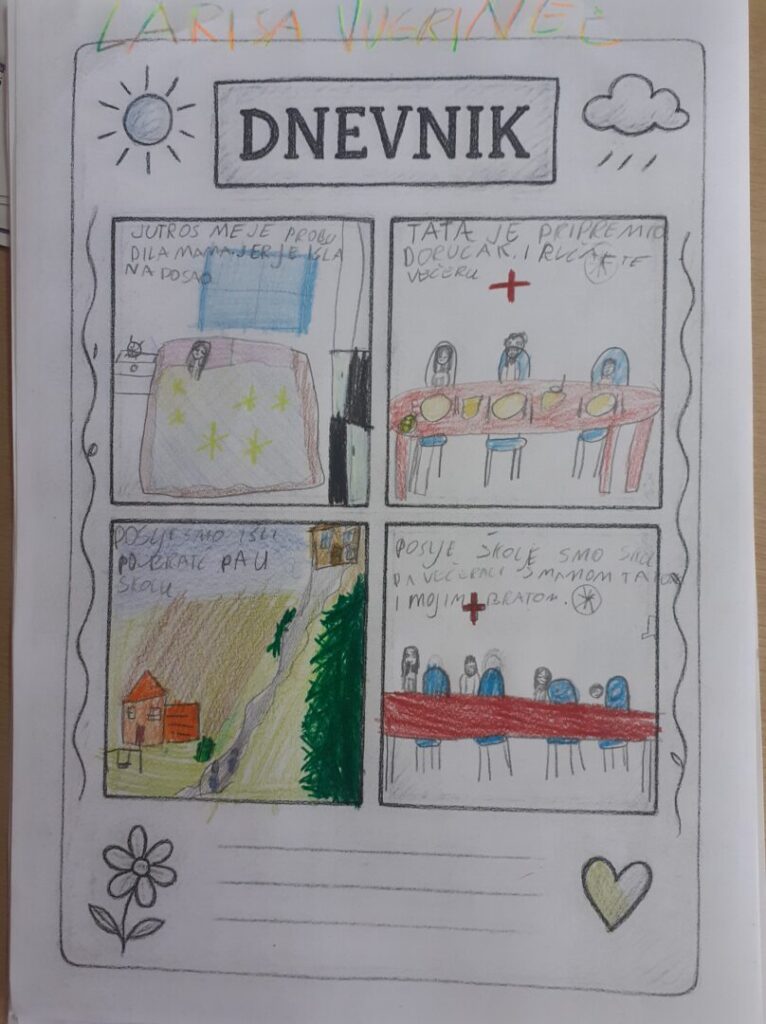 LARISA VUGRINEC
DNEVNIK
JUTROS ME JE PROBU
DILA MAMA JER JE IŠLA
NA POSAO
TATA JE PRIPREMIO
DORUČAK I RUČAK TE
VEČERU
POSLJE SMO IŠLI
PO BRATA PA U
ŠKOLU
POSLJE ŠKOLE SMO
DA VEČERALI S MAMOM TATOM
I MOJIM BRATOM.